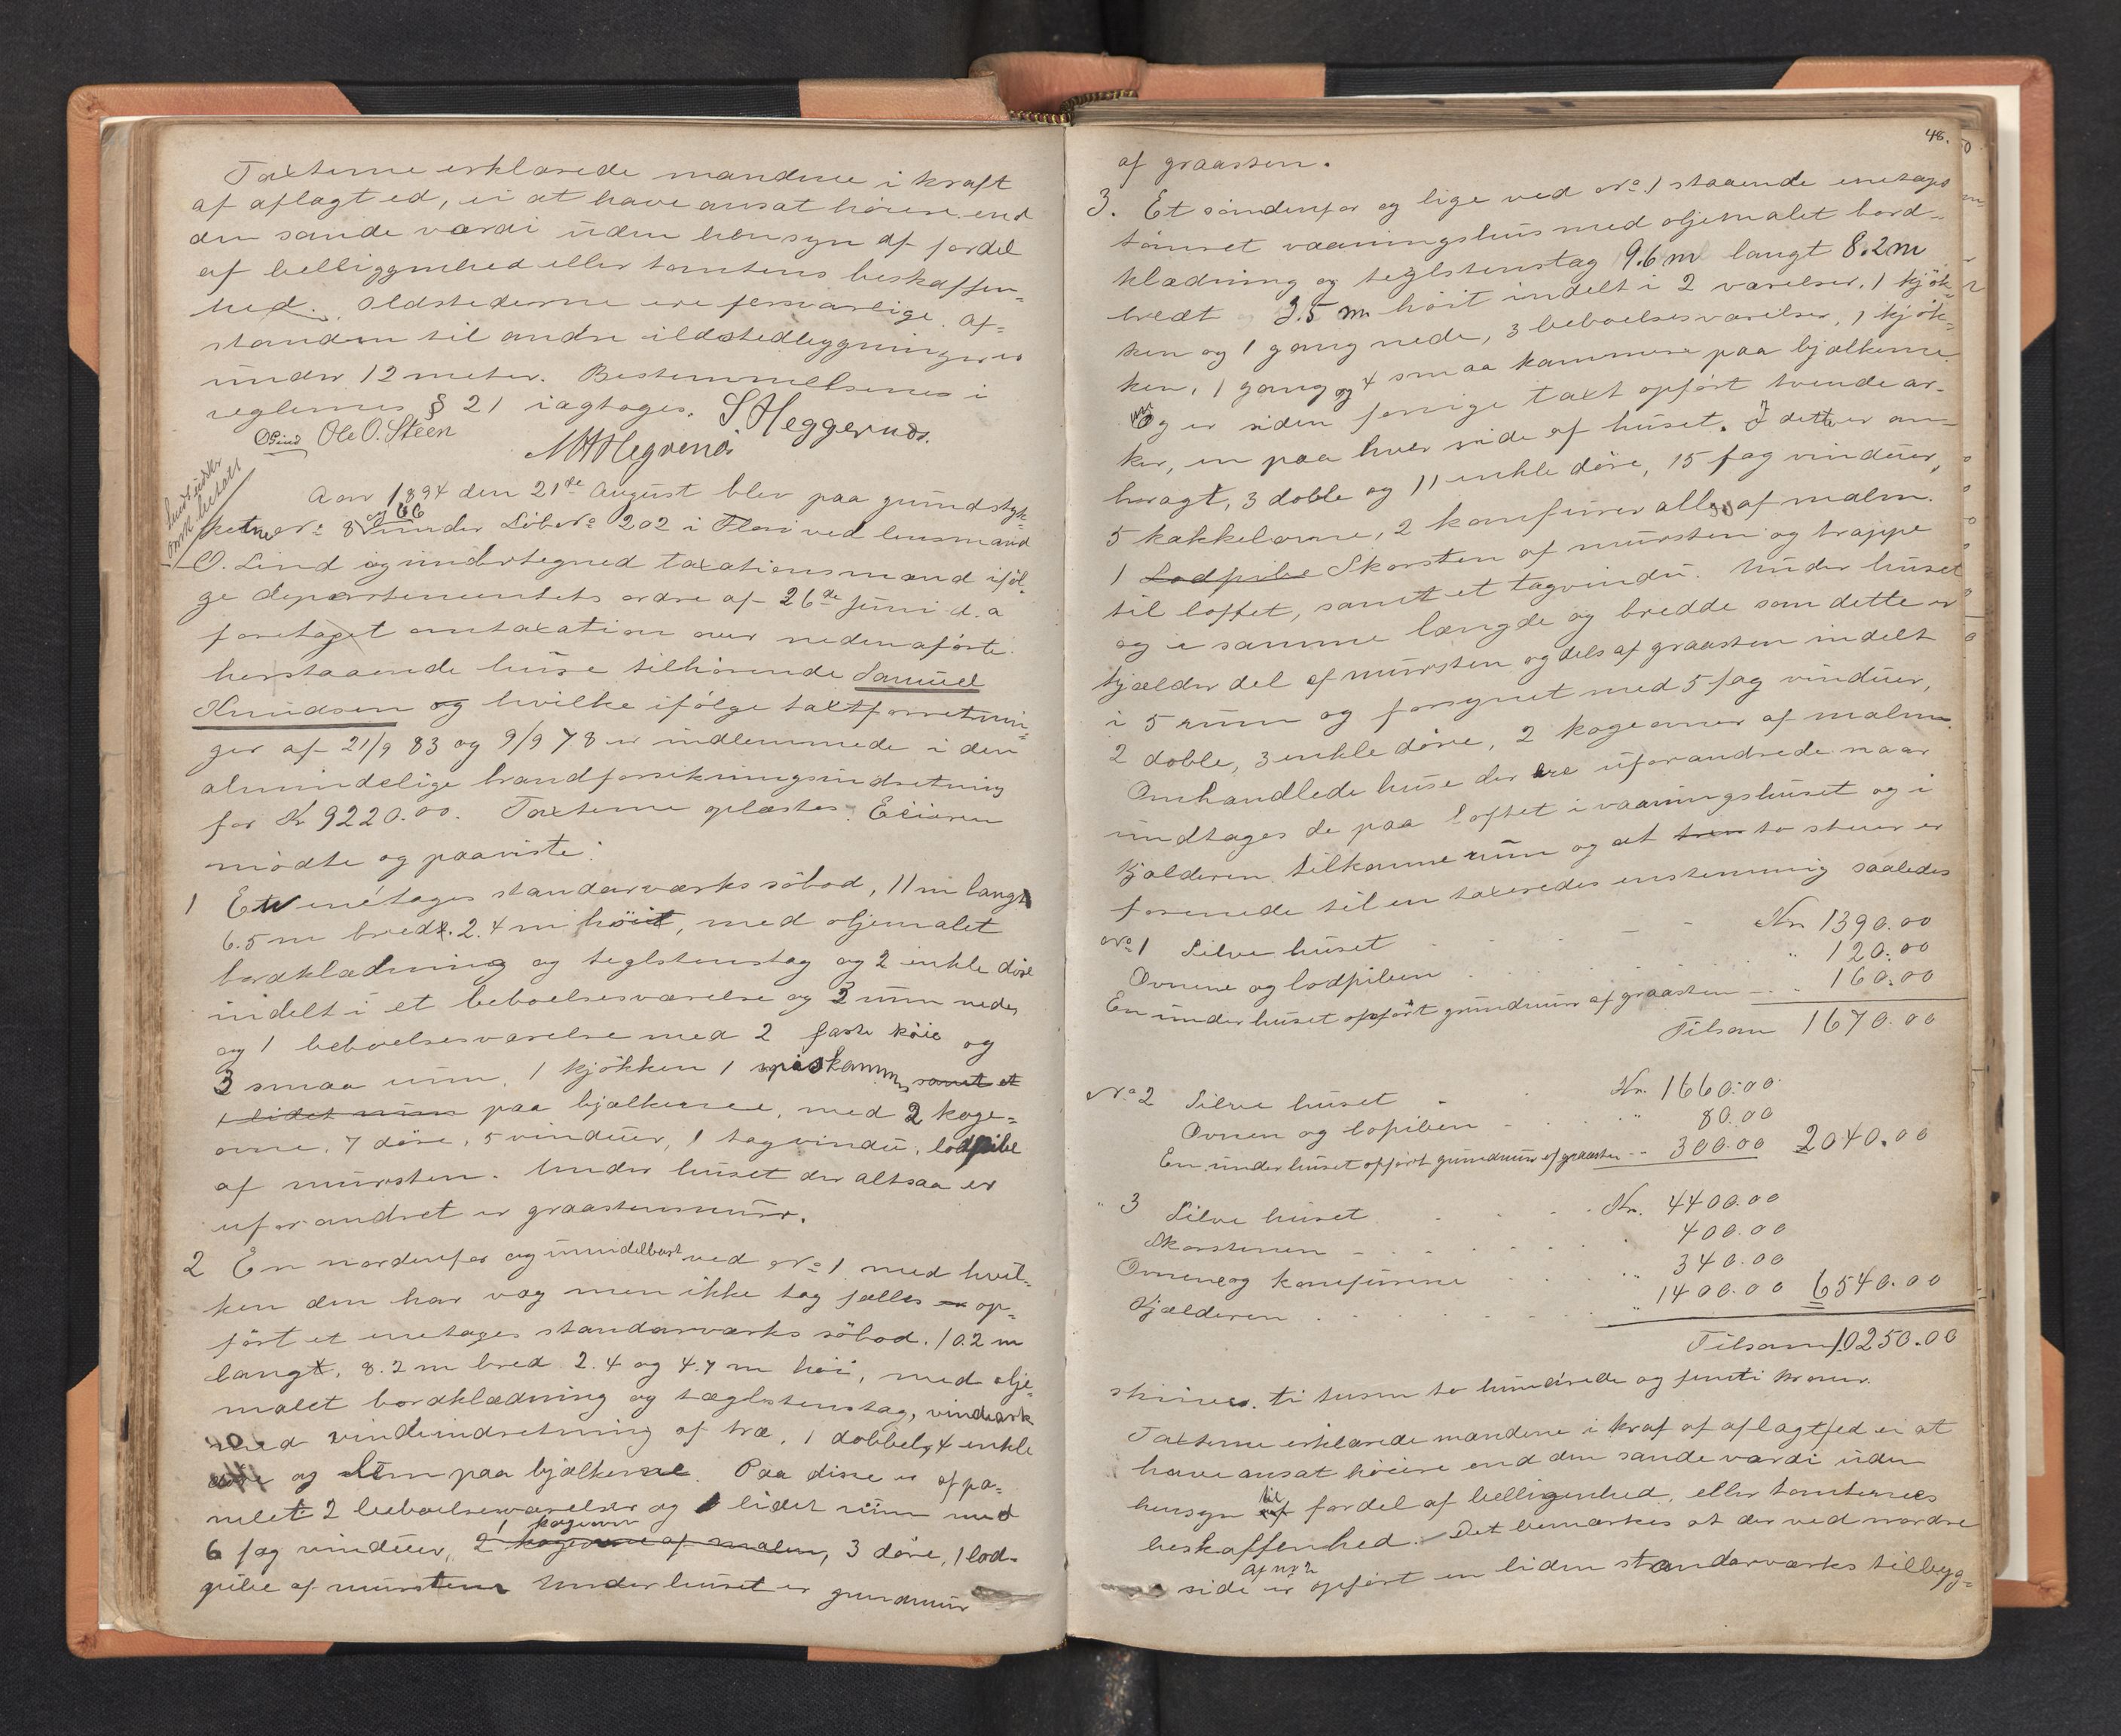 Taxterne erklærede mændene i kraft
af aflagt ed, ei at have ansat høiere end
den sande værdi uden hensyn af fordel
af belliggenhed eller tomtens beskaffen=
hed. Ildstederne ere forsvarlige. Af=
standen til andre ildstedbygninger er
under 12 meter. Bestemmelserne i
reglernes § 21 iagtages. S Heggernæs.
OLind Ole O. Steen
Aar 1894 den 21de August blev paa grundstyk=
kerne No 8 og 66 under Löbe No 202 i Florø ved lensmand
O. Lind og undertegned taxationsmænd iføl=
ge departementets ordre af 26de Juni d. a
foretaget omtaxation over nedenaførte
herstaaende huse tilhørende Samuel
Knudsen og hvilke ifølge taxtforretnin=
ger af 21/9 83 og 9/9 78 er indlemmede i den
almindelige brandforsikringsindretning
for Kr 9220.00. Taxterne oplæstes. Eieren
mødte og paaviste:
1 En enétages standarværks söbod, 11 m langt
6.5 m bredt. 2.4 m höit, med oljemalet
bordklædning og teglstenstag og 2 enkle döre
indelt i et beboelsesværelse og 3 rum nede,
og 1 beboelsesværelse med 2 faste köie og
3 smaa rum, 1 kjökken 1 spiskammer samt et
1 lidet rum paa bjælkerne, med 2 koge=
ovne, 7 döre, 5 vinduer, 1 tagvindu, lodpibe
af mursten. Under huset der altsaa er
uforandret er graastensmur.
2 En nordenfor og umidelbart ved No 1 med hvil=
ken den har væg men ikke tag fælles op=
fört et enetages standarværks söbod. 10.2 m
langt, 8.2 m bred 2.4 og 4.7 m höi, med olje=
malet bordklædning og tæglstenstag, vindeark
med vindeindretning af træ, 1 dobbel, 4 enkle
döre og lem paa bjælkerne. Paa disse er afpa=
nelet 2 beboelsesværelser og 1 lidet rum med
1 kogeovn
6 fag vinduer, 2 kogeovne af malm, 3 döre, 1 lod-
pibe af mursten Under huset er grundmur
48.
af graasten.
3. Et söndenfor og lige ved No 1 staaende enetages
tömret vaaningshus med oljemalet bord-
klædning og teglstenstag 9.6 m langt 8.2 m
bredt 3.5 m höit indelt i 2 værelser, 1 kjök=
ken og 1 gang nede, 3 beboelsesværelser, 1 kjök=
ken, 1 gang og 4 smaa kammere paa bjælkerne
og er siden forrige taxt opfört tvende ar-
ker, en paa hver side af huset. I dette er an-
bragt, 3 doble og 11 enkle döre, 15 fag vinduer,
5 kakkelovne, 2 komfurer alle af malm.
1 Lodpibe Skorsten af mursten og trappe
til loftet, samt et tagvindu. Under huset
og i samme længde og bredde som dette er
kjælder del af mursten og dels af graasten indelt
i 5 rum og forsynet med 5 fag vinduer,
2 doble, 3 enkle döre, 2 kogeovner af malm.
Omhandlede huse der ere uforandrede naar
undtages de paa loftet i vaaningshuset og i
kjælderen tilkomne rum og at to stuer er
forenede til en taxeredes enstemmig saaledes
No 1 Selve huset Kr 1390.00
Ovnene og lodpiben " 120.00
En under huset opfört grundmur af graasten " 160.00
Tilsam 1670.00
No 2 Selve huset Kr. 1660.00
Ovnen og lopiben " 80.00
En under huset opfört grundmur af graasten -- 300.00 2040.00
" 3 Selve huset Kr. 4400.00
Skorstenen 400.00
Ovnene og komfurene " 340.00
Kjælderen " 1400.00 6540.00
Tilsam 10250.00
skriver ti tusen to hundrede og femti kroner.
Taxterne erklærede mændene i kraf af aflagt ed ei at
have ansat höiere end den sande værdi uden
hensyn til fordel af belligenhed, eller tomternes
beskaffenhed. Det bemærkes at der ved nordre
af no 2
side er opfört en liden standarværks tilbyg=